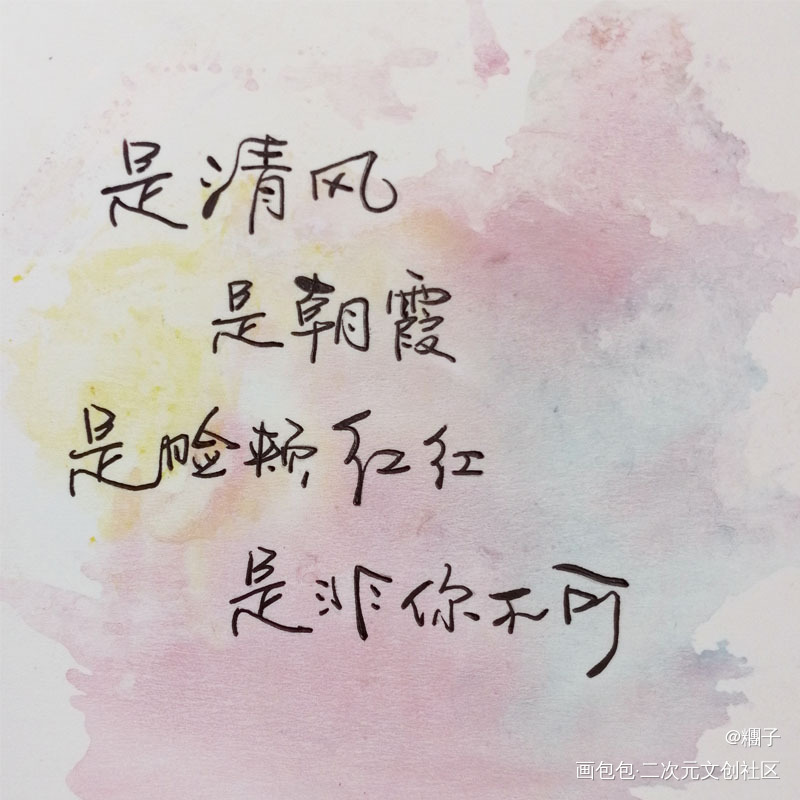 是清风
是朝霞
是脸颊红红
是非你不可
@糰子
画包包·二次元文创社区